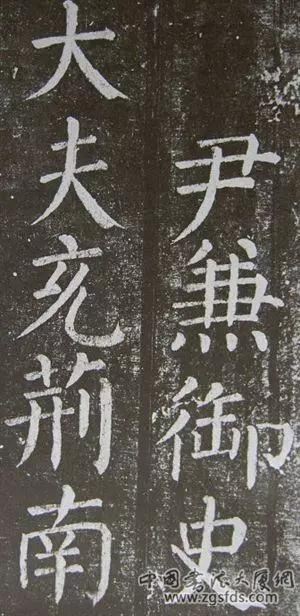 尹兼御史
大夫充荆南
中国书法大展网
www.zgsfds.com